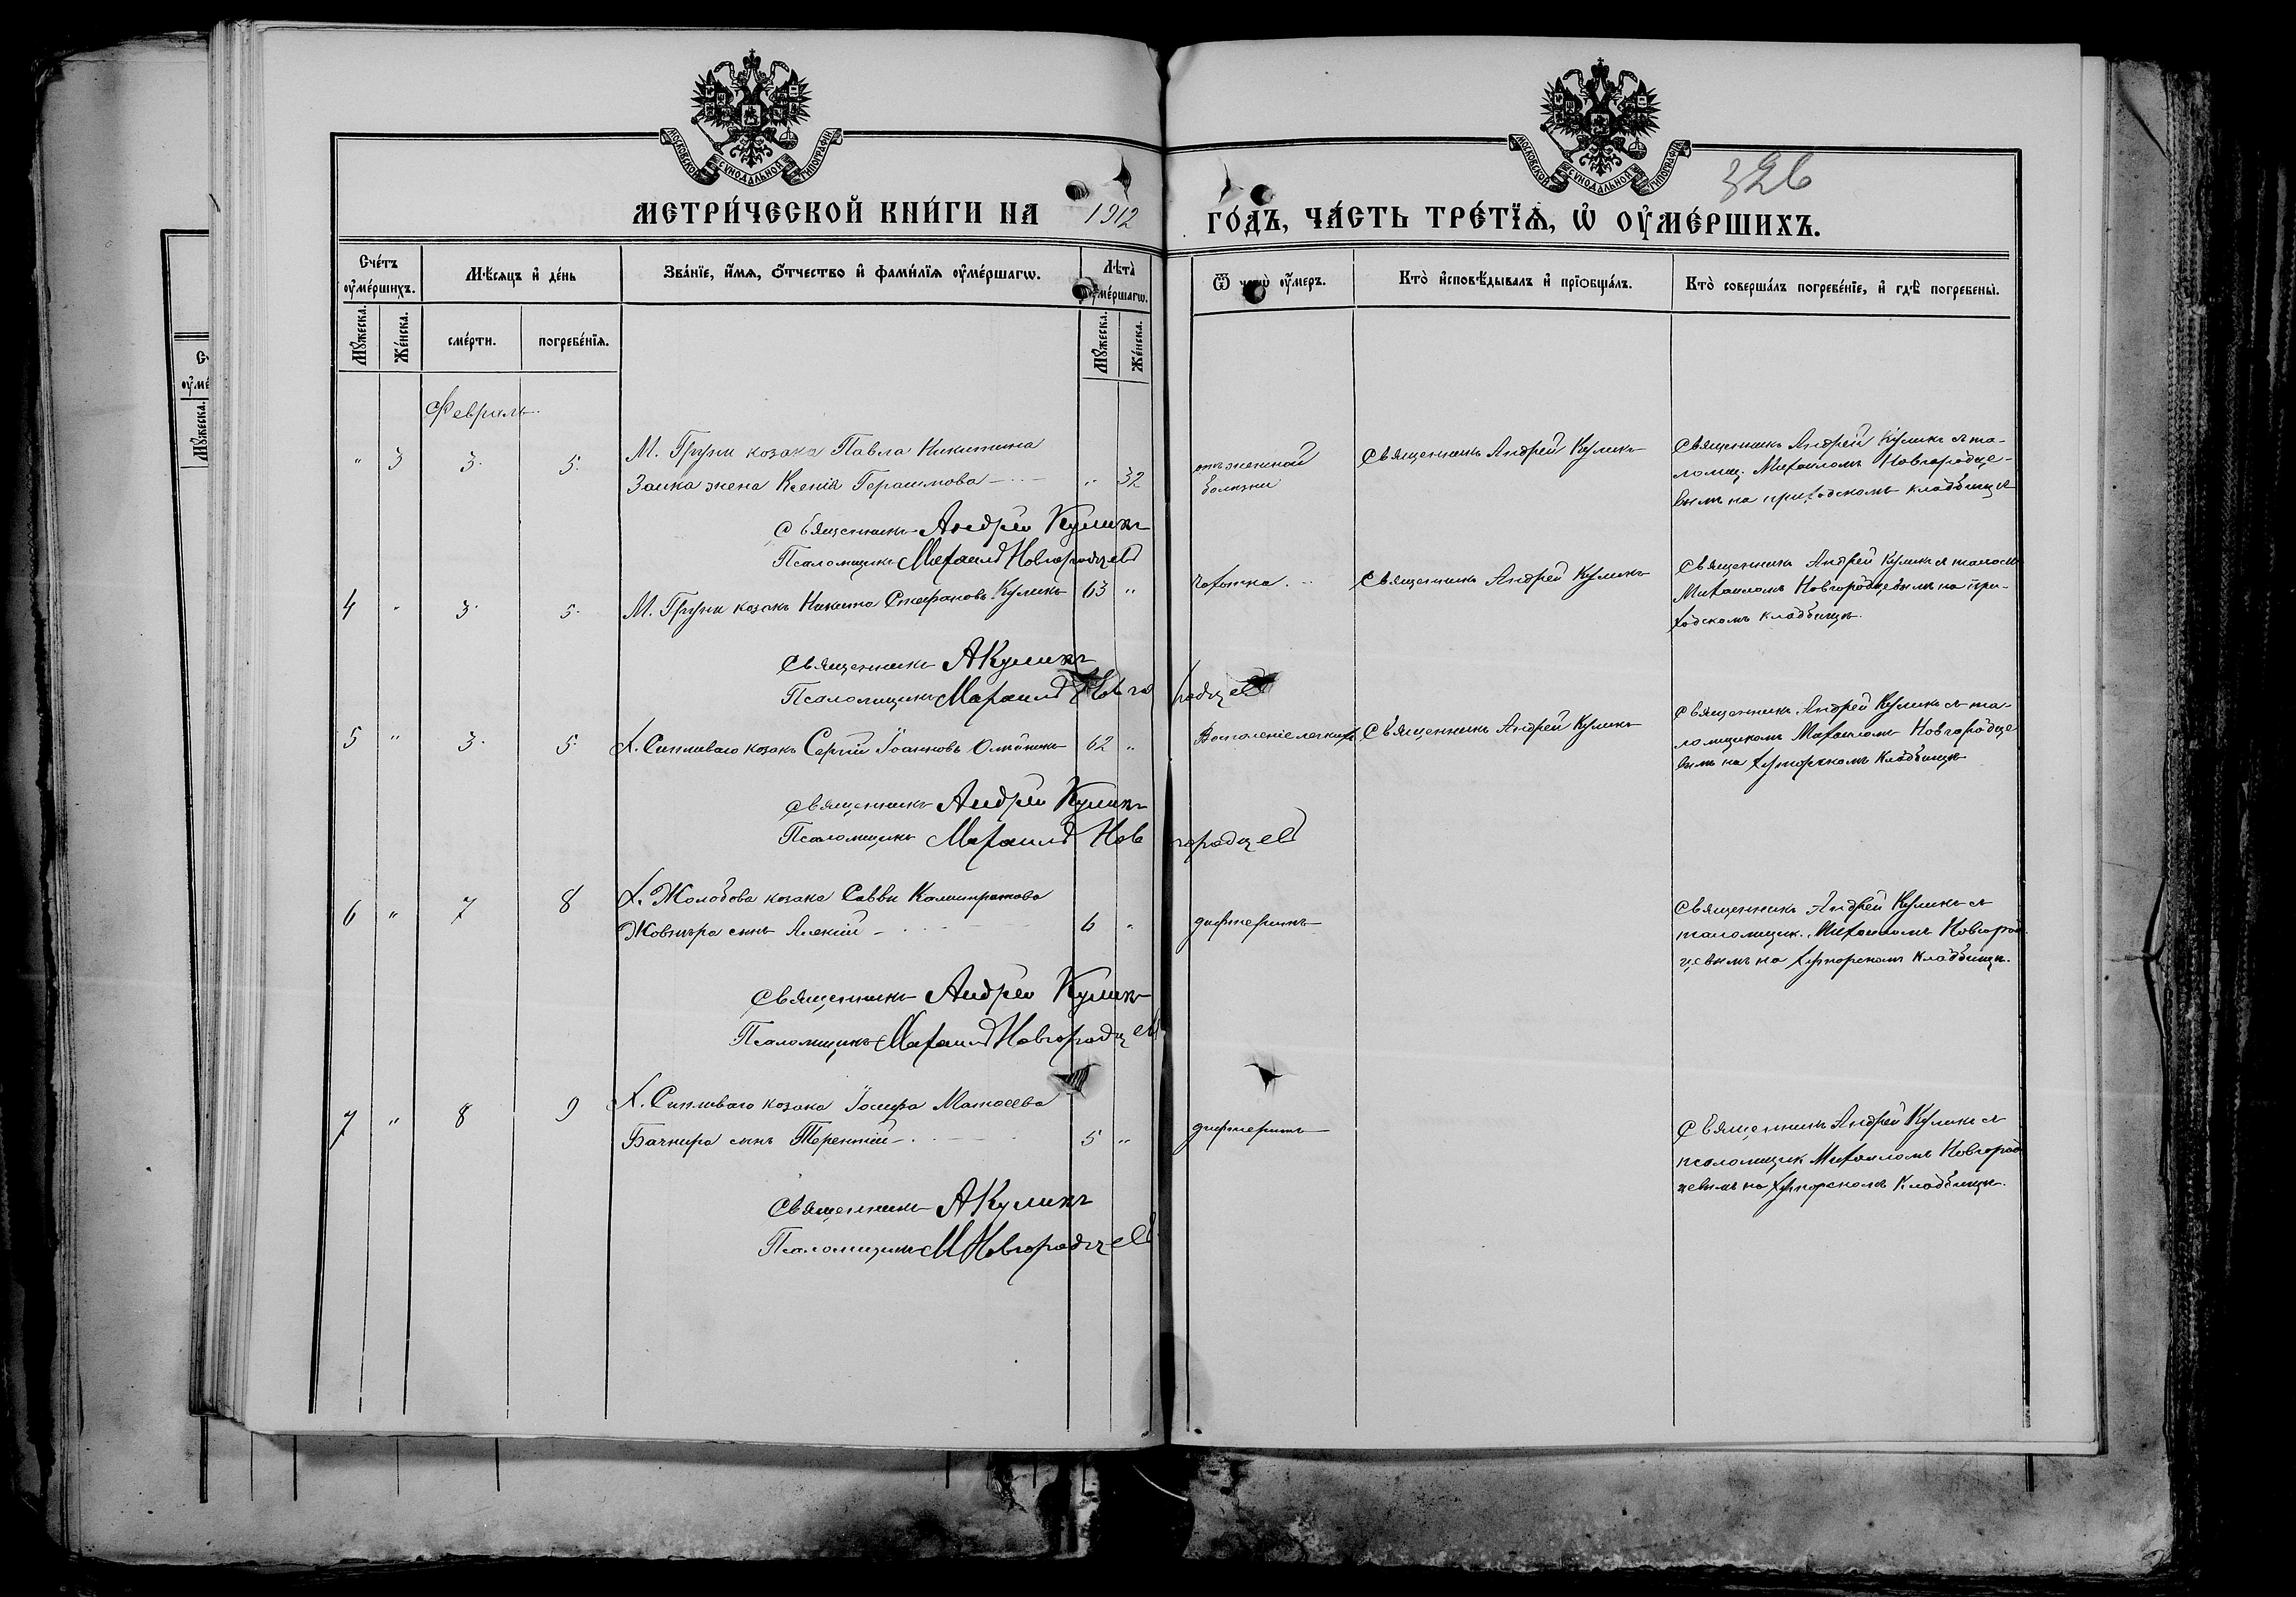 МОСКОВСКОЙ СѴНОДАЛЬНОЙ ТИПОГРАФІИ
МОСКОВСКОЙ СѴНОДАЛЬНОЙ ТИПОГРАФІИ
326
МЕТРИ́ЧЕСКОЙ КНИ́ГИ НА 1912 ГО́ДЪ, ЧА́СТЬ ТРЕ́ТЇѦ, Ѡ҆ ОУ҆МЕ́РШИХЪ.
Сче́тъ оу҆ме́ршихъ.
Му́жеска.
Же́нска.
Мѣ́сяцъ и҆ де́нь
сме́рти.
погребе́нїя.
Зва́нїе, и҆́мя, ѻ҆́тчество и҆ фами́лїя оу҆ме́ршагѡ.
Лѣта̀ оу҆ме́ршагѡ.
Му́жеска.
Же́нска.
Ѿ чегѡ̀ оу҆́меръ.
Кто̀ и҆сповѣ́дывалъ и҆ прїѡбща́лъ.
Кто̀ соверша́лъ погребе́нїе, и҆ гдѣ̀ погребены̀.
Февраль.
" 3 3. 5.
М. Груни козака Павла Никитина
Заика жена Ксенія Герасимова " 32
Священникъ Андрей Куликъ
Псаломщикъ Михаилъ Новгородцевъ
болѣзни
Священникъ Андрей Куликъ
Священникъ Андрей Куликъ съ пса-
ломщ. Михаиломъ Новгородце-
вымъ на приходскомъ кладбищѣ
4 " 3. 5.
М. Груни козакъ Никита Стефановъ Куликъ 63 "
Священникъ АКуликъ
Псаломщикъ Михаилъ Новгородцевъ
чахотка.
Священникъ Андрей Куликъ
Священникъ Андрей Куликъ съ псалом
Михаиломъ Новгородцевымъ на при-
ходскомъ кладбищѣ.
5 " 3. 5.
Х. Сипливаго козакъ Сергій Іоанновъ Олѣйникъ 62 "
Священникъ Андрей Куликъ
Псаломщикъ Михаилъ Новгородцевъ
Воспаленіе легкихъ
Священникъ Андрей Куликъ
Священникъ Андрей Куликъ съ пса-
ломщикомъ Михаиломъ Новгородце
вымъ на хуторскомъ кладбищѣ
6 " 7 8
Х. Жолобова козака Саввы Каллистратова
Жовнира сынъ Алексій 6 "
Священникъ Андрей Куликъ
Псаломщикъ Михаилъ Новгородцевъ
дифтеритъ
Священникъ Андрей Куликъ съ
псаломщик. Михаиломъ Новгород
цевымъ на хуторскомъ кладбищѣ.
7 " 8 9
Х. Сипливаго козака Іосифа Матѳеева
сынъ Терентій 5 "
Священникъ АКуликъ
Псаломщикъ МНовгородцевъ
дифтеритъ
Священникъ Андрей Куликъ съ
псаломщик Михаиломъ Новгород
цевымъ на хуторскомъ кладбищѣ.